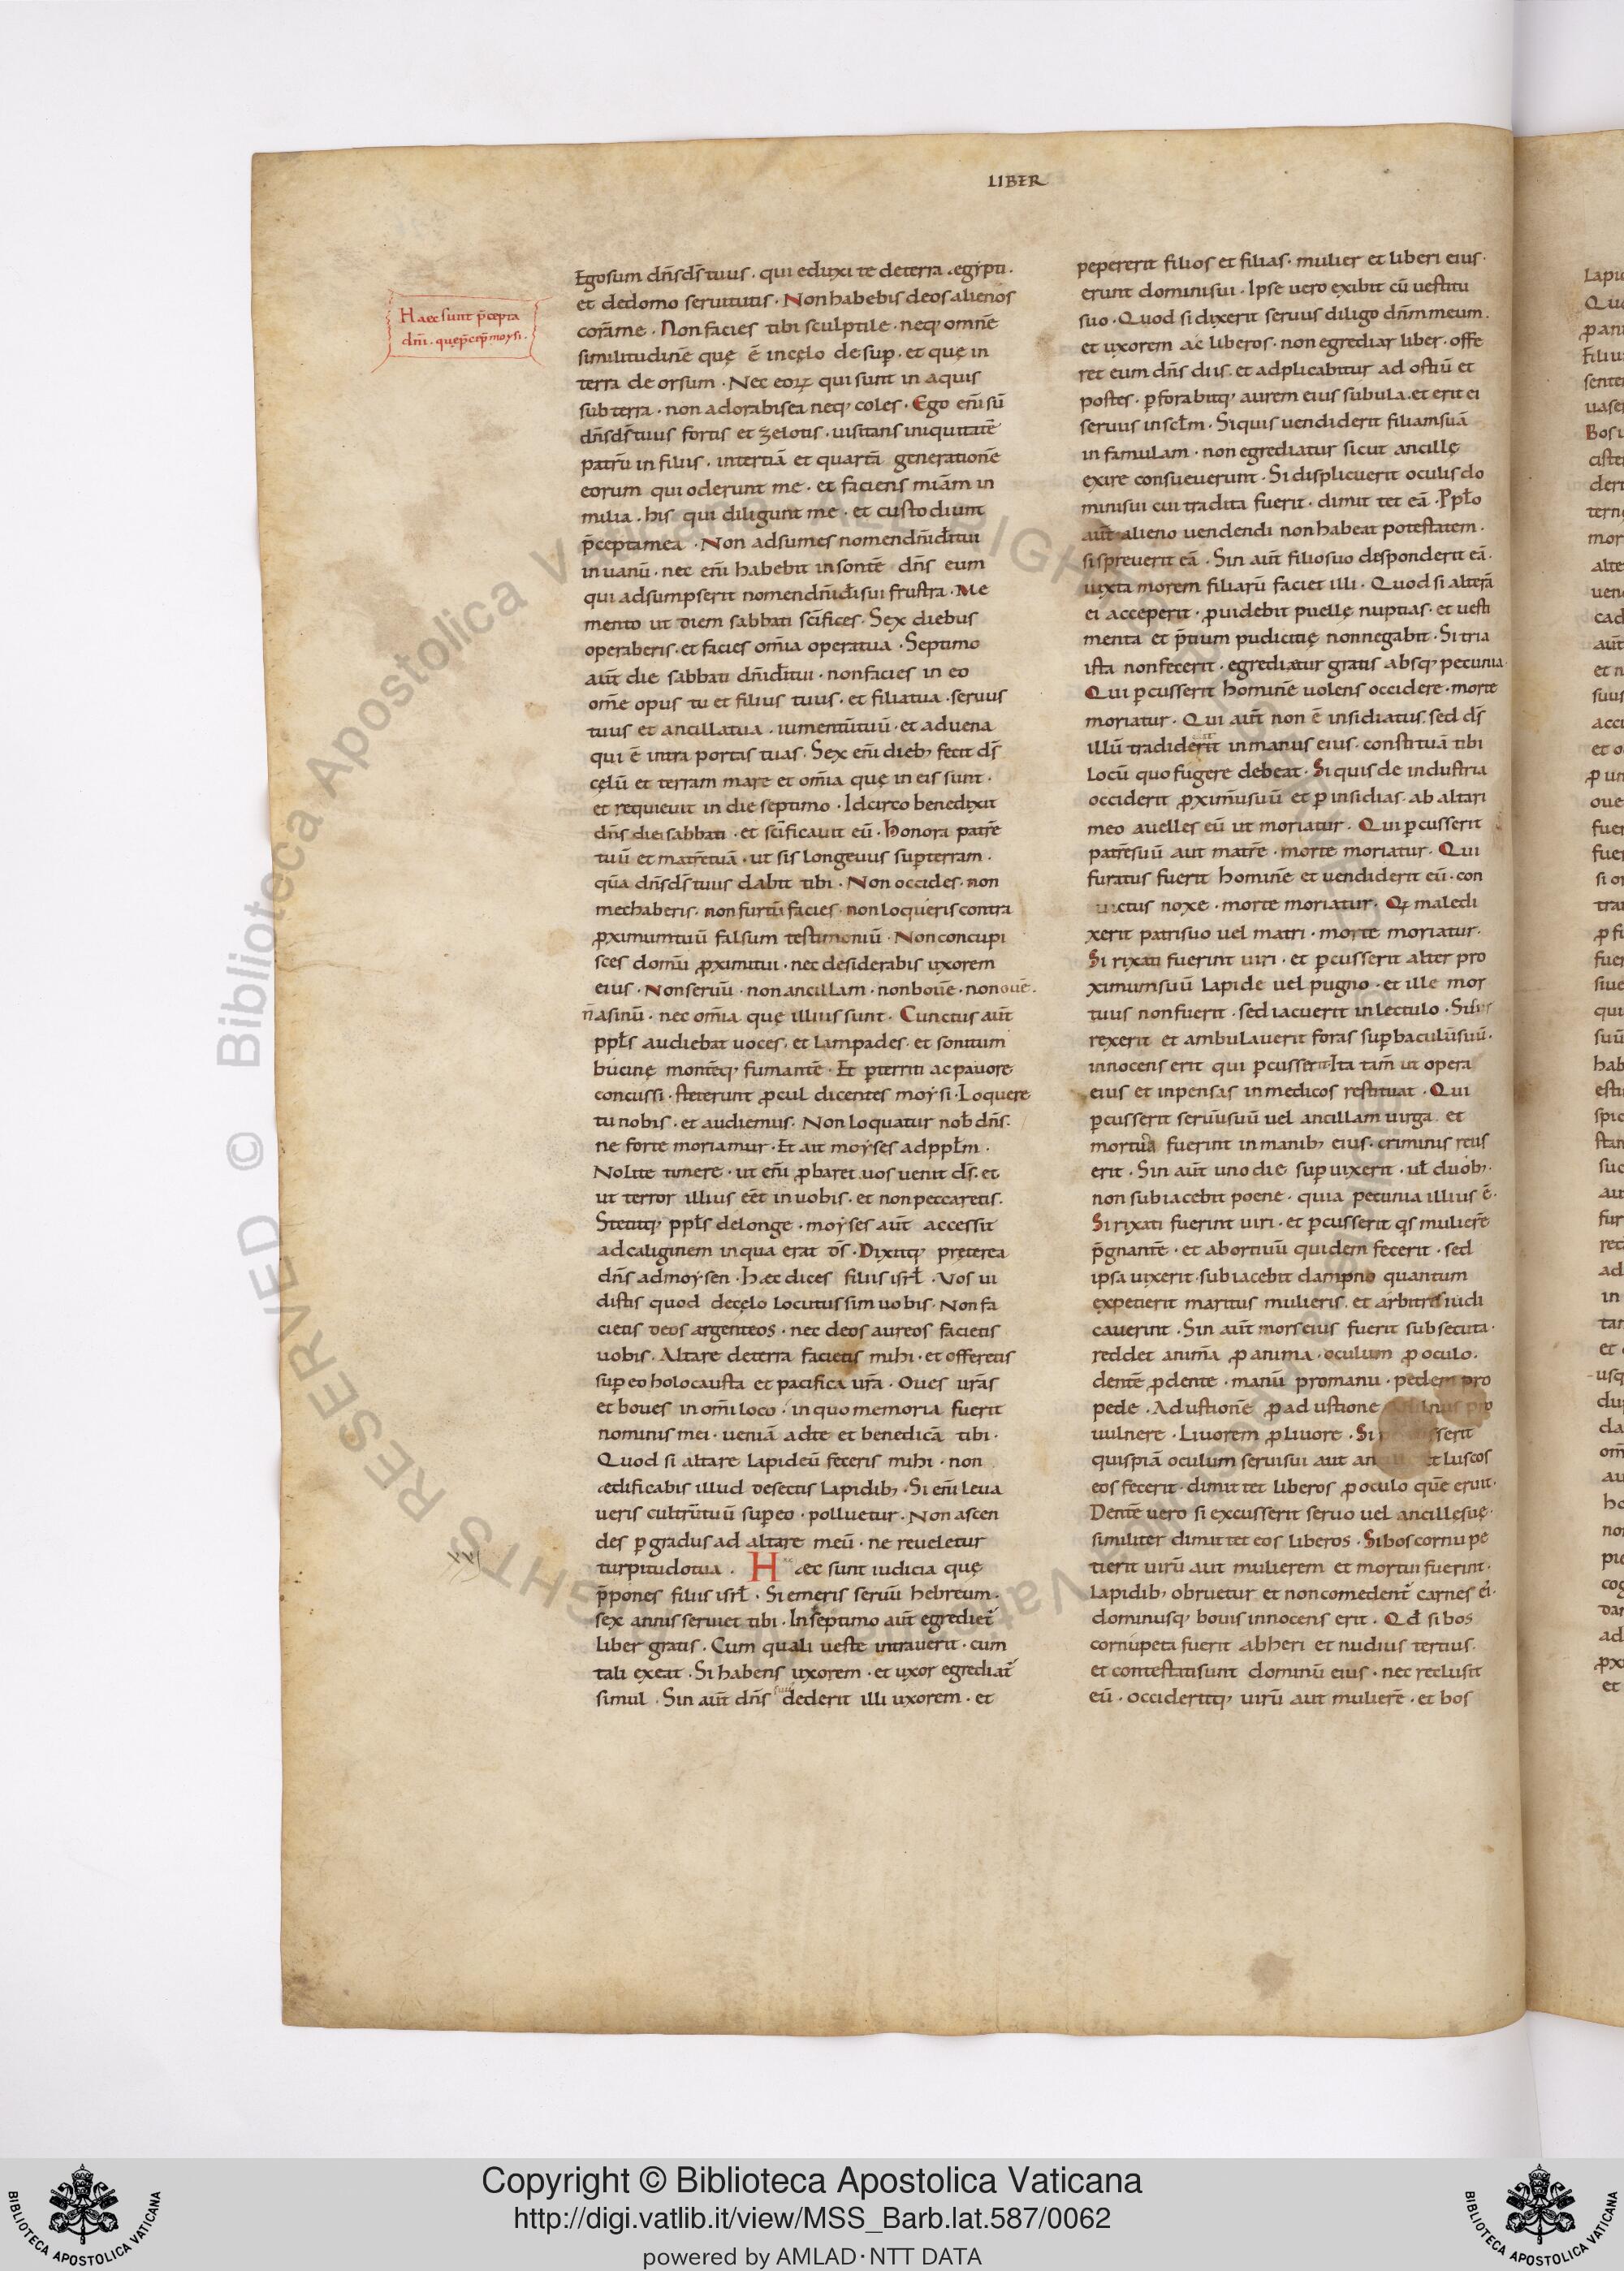 LIBER
Haec sunt p̄cepta
dn̄i. que p̄cep̄ moysi.
Ego sum dn̄s ds̄ tuus. qui eduxi te de terra ęgypti.
et de domo seruitutis. Non habebis deos alienos
corā me. Non facies tibi sculptile. neq; omnē
similitudinē quę ē in cęlo desup̱. et quę in
terra deorsum. Nec eoꝝ qui sunt in aquis
sub terra. non adorabis ea neq; coles. Ego eni̅ sū
dn̄s ds̄ tuus fortis et zelotis. uisitans iniquitatē
patrū in filiis. in tertiā et quartā generationē
eorum qui oderunt me. et faciens miām in
milia. his qui diligunt me. et custodiunt
p̄cepta mea. Non adsumes nomen dn̄i dī tui
in uanū. nec eni̅ habebit insontē dn̄s eum
qui adsumpserit nomen dn̄i di̅ sui frustra. Me
mento ut diem sabbati scīfices. Sex diebus
operaberis. et facies om̄ia opera tua. Septimo
aūt die sabbati dn̄i dī tui. non facies in eo
om̄e opus tu et filius tuus. et filia tua. seruus
tuus et ancilla tua. iumentū tuū. et aduena
qui ē intra portas tuas. Sex eni̅ dieb; fecit ds̄
cęlū et terram mare et om̄ia quę in eis sunt.
et requieuit in die septimo. Idcirco benedixit
dn̄s diei sabbati. et scīficauit eū. Honora patrē
tuū et matrē tuā. ut sis longeuus sup̱ terram.
quā dn̄s ds̄ tuus dabit tibi. Non occides. non
mechaberis. non furtū facies. non loqueris contra
ꝓximum tuū falsum testimoniū. Non concupi
sces domū ꝓximi tui. nec desiderabis uxorem
eius. Non seruū. non ancillam. non bouē. non ouē.
n̄ asinū. nec om̄ia quę illius sunt. Cunctus aūt
ppl̄s audiebat uoces. et lampades. et sonitum
bucinę montēq; fumantē. Et p̱territi ac pauore
concussi. steterunt ꝓcul dicentes moysi. Loquere
tu nobis. et audiemus. Non loquatur nob̄ dn̄s.
ne forte moriamur. Et ait moyses ad ppl̄m.
Nolite timere. ut eni̅ ꝓbaret uos uenit ds̄. et
ut terror illius eēt in uobis. et non peccaretis.
Stetitq; ppl̄s de longe. moyses aūt accessit
ad caliginem in qua erat ds̄. Dixitq; pręterea
dn̄s ad moysen. Hæc dices filiis isrl̄. Vos ui
distis quod de cęlo locutus sim uobis. Non fa
cietis deos argenteos. nec deos aureos facietis
uobis. Altare de terra facietis mihi. et offeretis
sup̱ eo holocausta et pacifica ur̄a. Oues ur̄as
et boues in om̄i loco. in quo memoria fuerit
nominis mei. ueniā ad te et benedicā tibi.
Quod si altare lapideū feceris mihi. non
ædificabis illud de sectis lapidib;. Si eni̅ leua
ueris cultrū tuū sup̱ eo. polluetur. Non ascen
des p̱ gradus ad altare meū. ne reueletur
turpitudo tua. Hæc sunt iudicia quę
p̄pones filiis isrl̄. Si emeris seruū hebreum.
sex annis seruiet tibi. In septimo aūt egrediet̄
liber gratis. Cum quali ueste intrauerit. cum
tali exeat. Si habens uxorem. et uxor egrediat̄
simul. Sin aūt dn̄s dederit illi uxorem. et
pepererit filios et filias. mulier et liberi eius.
erunt domini sui. Ipse uero exibit cū uestitu
suo. Quod si dixerit seruus diligo dn̄m meum.
et uxorem ac liberos. non egrediar liber. offe
ret eum dn̄s diis. et adplicabitur ad ostiū et
postes. p̱forabitq; aurem eius subula. et erit ei
seruus in scl̄m. Si quis uendiderit filiam suā
in famulam. non egrediatur sicut ancillę
exire consueuerunt. Si displicuerit oculis do
mini sui cui tradita fuerit. dimittet eā. Ppl̄o
aūt alieno uendendi non habeat potestatem.
si spreuerit eā. Sin aūt filio suo desponderit eā.
iuxta morem filiarū faciet illi. Quod si alterā
ei acceperit. ꝓuidebit puellę nuptias. et uesti
menta et p̄tium pudicitię non negabit. Si tria
ista non fecerit. egredietur gratis absq; pecunia.
Qui p̱cusserit hominē uolens occidere. morte
moriatur. Qui aūt non ē insidiatus. sed ds̄
illū tradiderit in manus eius. constituā tibi
locū quo fugere debeat. Si quis de industria
occiderit ꝓximū suū et p̱ insidias. ab altari
meo auelles eū ut moriatur. Qui p̱cusserit
patrē suū aut matrē. morte moriatur. Qui
furatus fuerit hominē et uendiderit eū. con
uictus noxe. morte moriatur. Qi maledi
xerit patri suo uel matri. morte moriatur.
Si rixati fuerint uiri. et p̱cusserit alter pro
ximum suū lapide uel pugno. et ille mor
tuus non fuerit. sed iacuerit in lectulo. Si sur
rexerit et ambulauerit foras sup̱ baculū suū.
innocens erit qui p̱cusserit. Ita tam̄ ut opera
eius et inpensas in medicos restituat. Qui
p̱cusserit seruū suū uel ancillam uirga. et
mortua fuerint in manib; eius. criminis reus
erit. Sin aūt uno die sup̱uixerit. ul̄ duob;.
non subiacebit poene. quia pecunia illius ē.
Si rixati fuerint uiri. et p̱cusserit qs mulierē
p̄gnantē. et abortiuū quidem fecerit. sed
ipsa uixerit. subiacebit dampno quantum
expetierit maritus mulieris. et arbitri iudi
cauerint. Sin aūt mors eius fuerit subsecuta.
reddet anim̄a ꝓ anima. oculum ꝓ oculo.
dentē ꝓ dente. manū pro manu. pedem pro
pede. Adustionē ꝓ adustione
uulnere. Liuorem ꝓ liuore. Si
quispiā oculum serui sui aut luscos
eos fecerit. dimittet liberos ꝓ oculo quē eruit.
Dentē uero si excusserit seruo uel ancillę suę.
similiter dimittet eos liberos. Si bos cornu pe
tierit uirū aut mulierem et mortui fuerint.
lapidib; obruetur et non comedent̄ carnes ei;.
dominusq; bouis innocens erit. Qd̄ si bos
cornupeta fuerit ab heri et nudius tertius.
et contestati sunt dominū eius. nec reclusit
eū. occideritq; uirū aut mulierē. et bos
Copyright © Biblioteca Apostolica Vaticana
http://digi.vatlib.it/view/MSS_Barb.lat.587/0062
powered by AMLAD·NTT DATA